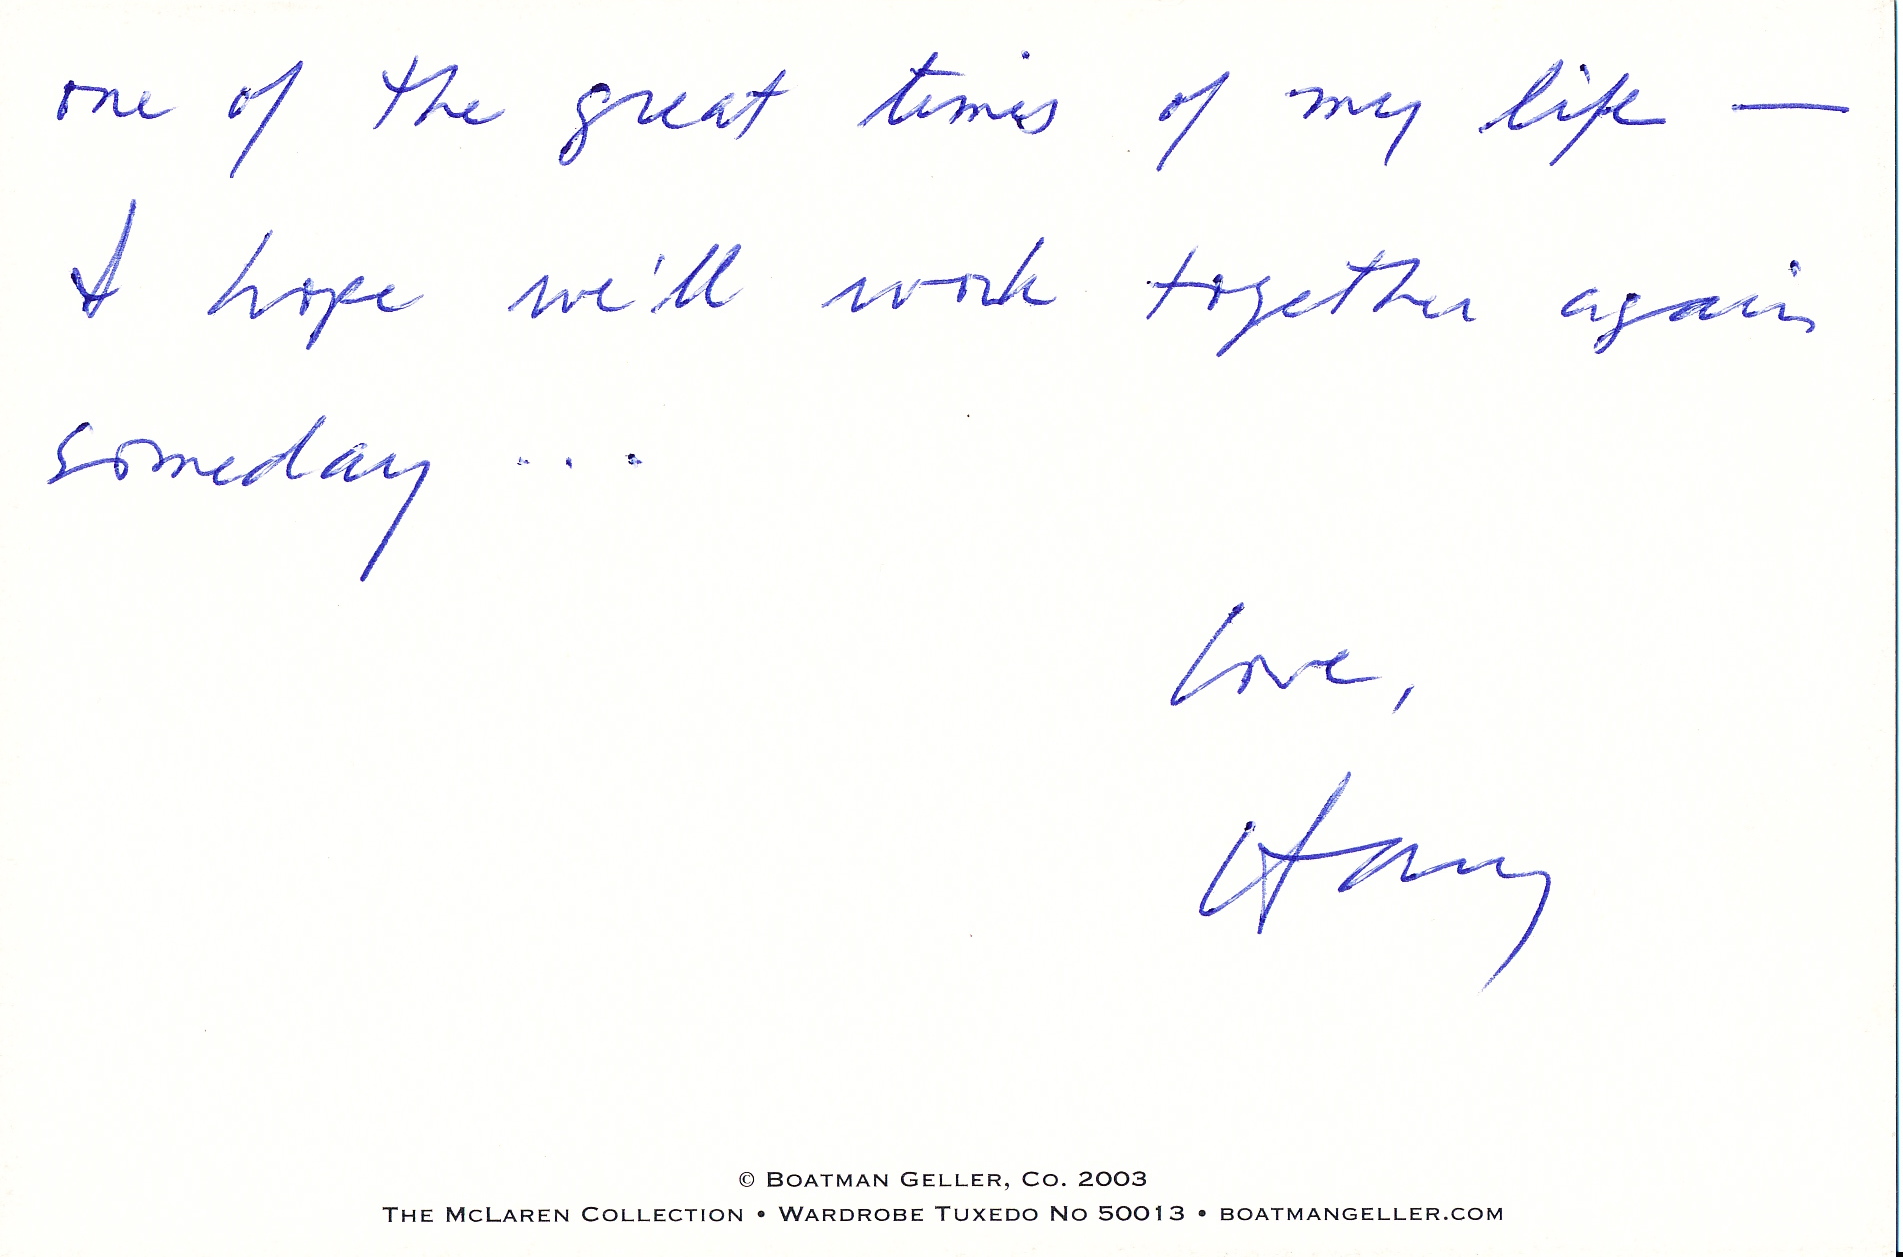 one of the great times of my life —
I hope we'll work together again
someday ...
Love,
© BOATMAN GELLER, CO. 2003
THE MCLAREN COLLECTION • WARDROBE TUXEDO NO 50013 • BOATMANGELLER.COM